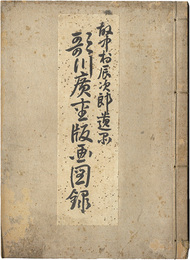 故中村辰次郎遺景
歌川廣重版画図録